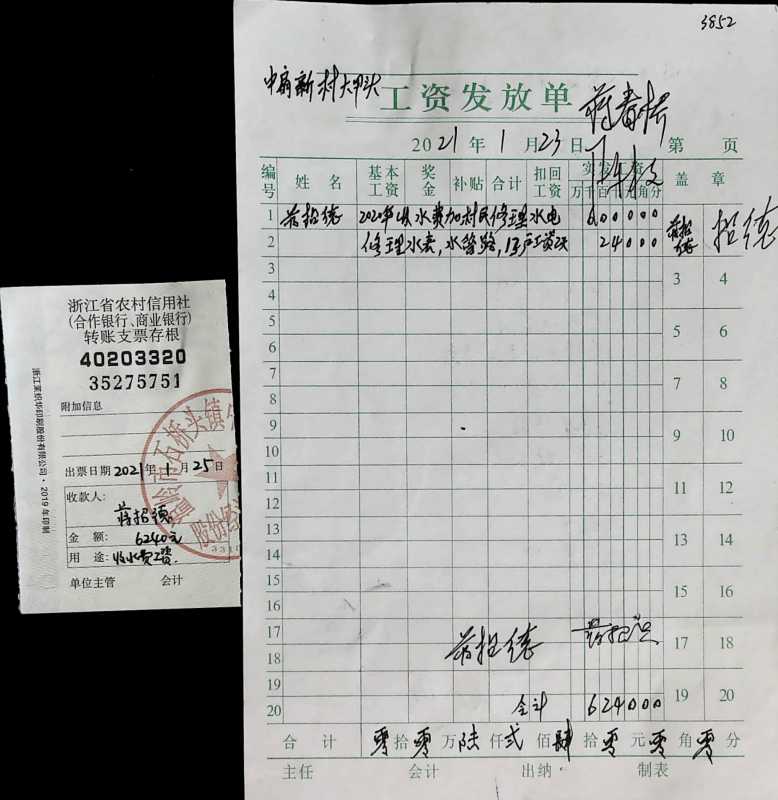 3852
工资发放单
2021年1月23日 第 页
编号 姓名 基本工资 奖金 补贴 合计 扣回工资 实发工资 盖章
万千百十元角分
1 蒋招德 2020年收水费加村民修理水电 600000
2 修理水表,水管路, 24000 蒋招德 招德
3 3 4
4
5 5 6
6
7 7 8
8
9 9 10
10
11 11 12
12
13 13 14
14
15 15 16
16
17 蒋招德 17 18
18
19 19 20
20 合计 624000
合计 零拾零万陆仟弍佰肆拾零元零角零分
主任 会计 出纳 制表
浙江省农村信用社
(合作银行、商业银行)
转账支票存根
40203320
35275751
附加信息
出票日期 2021年1月25日
收款人:
蒋招德
金额: 6240元
用途: 收水费工资
单位主管 会计
石桥头镇
股份经